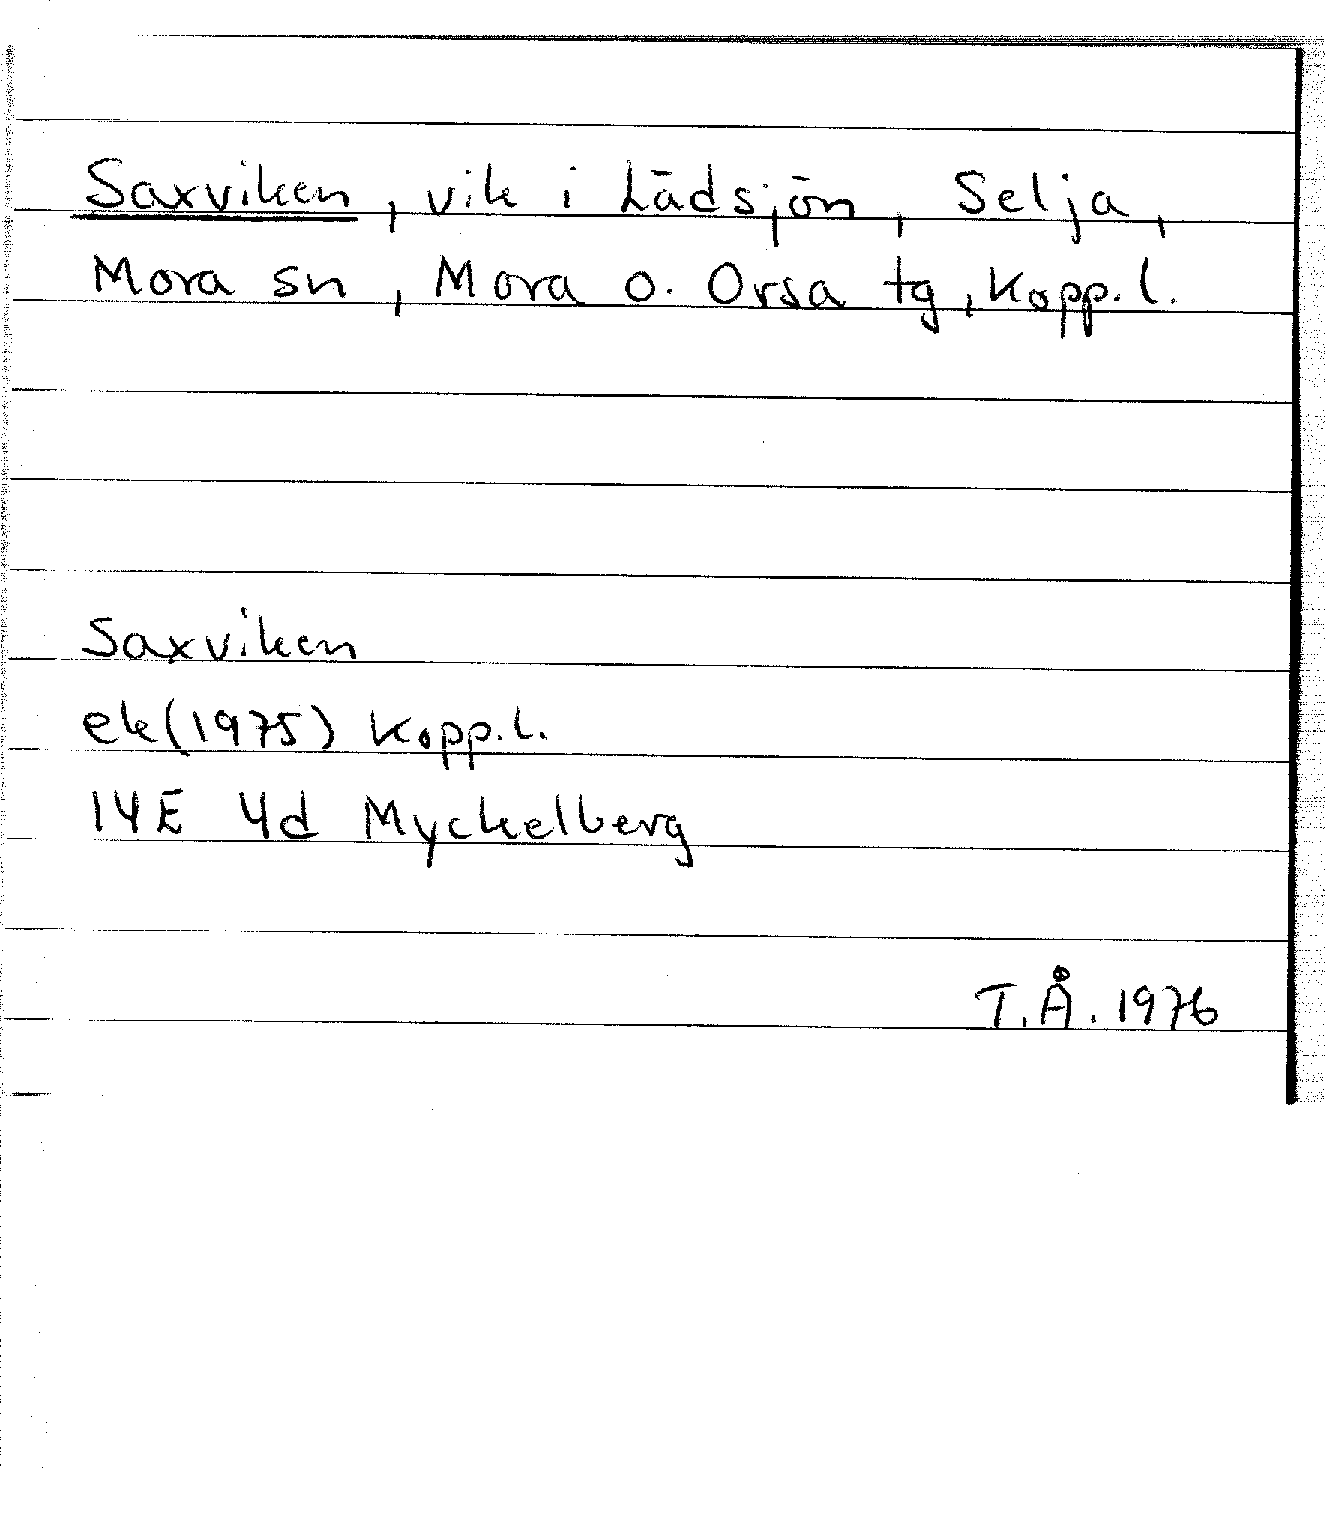 Saxviken, vik i Lädsjön, Selja,
Mora sn, Mora o. Orsa tg, Kopp.l.
Saxviken
ek(1975) Kopp.l.
14E 4d Myckelberg
T.Å. 1976